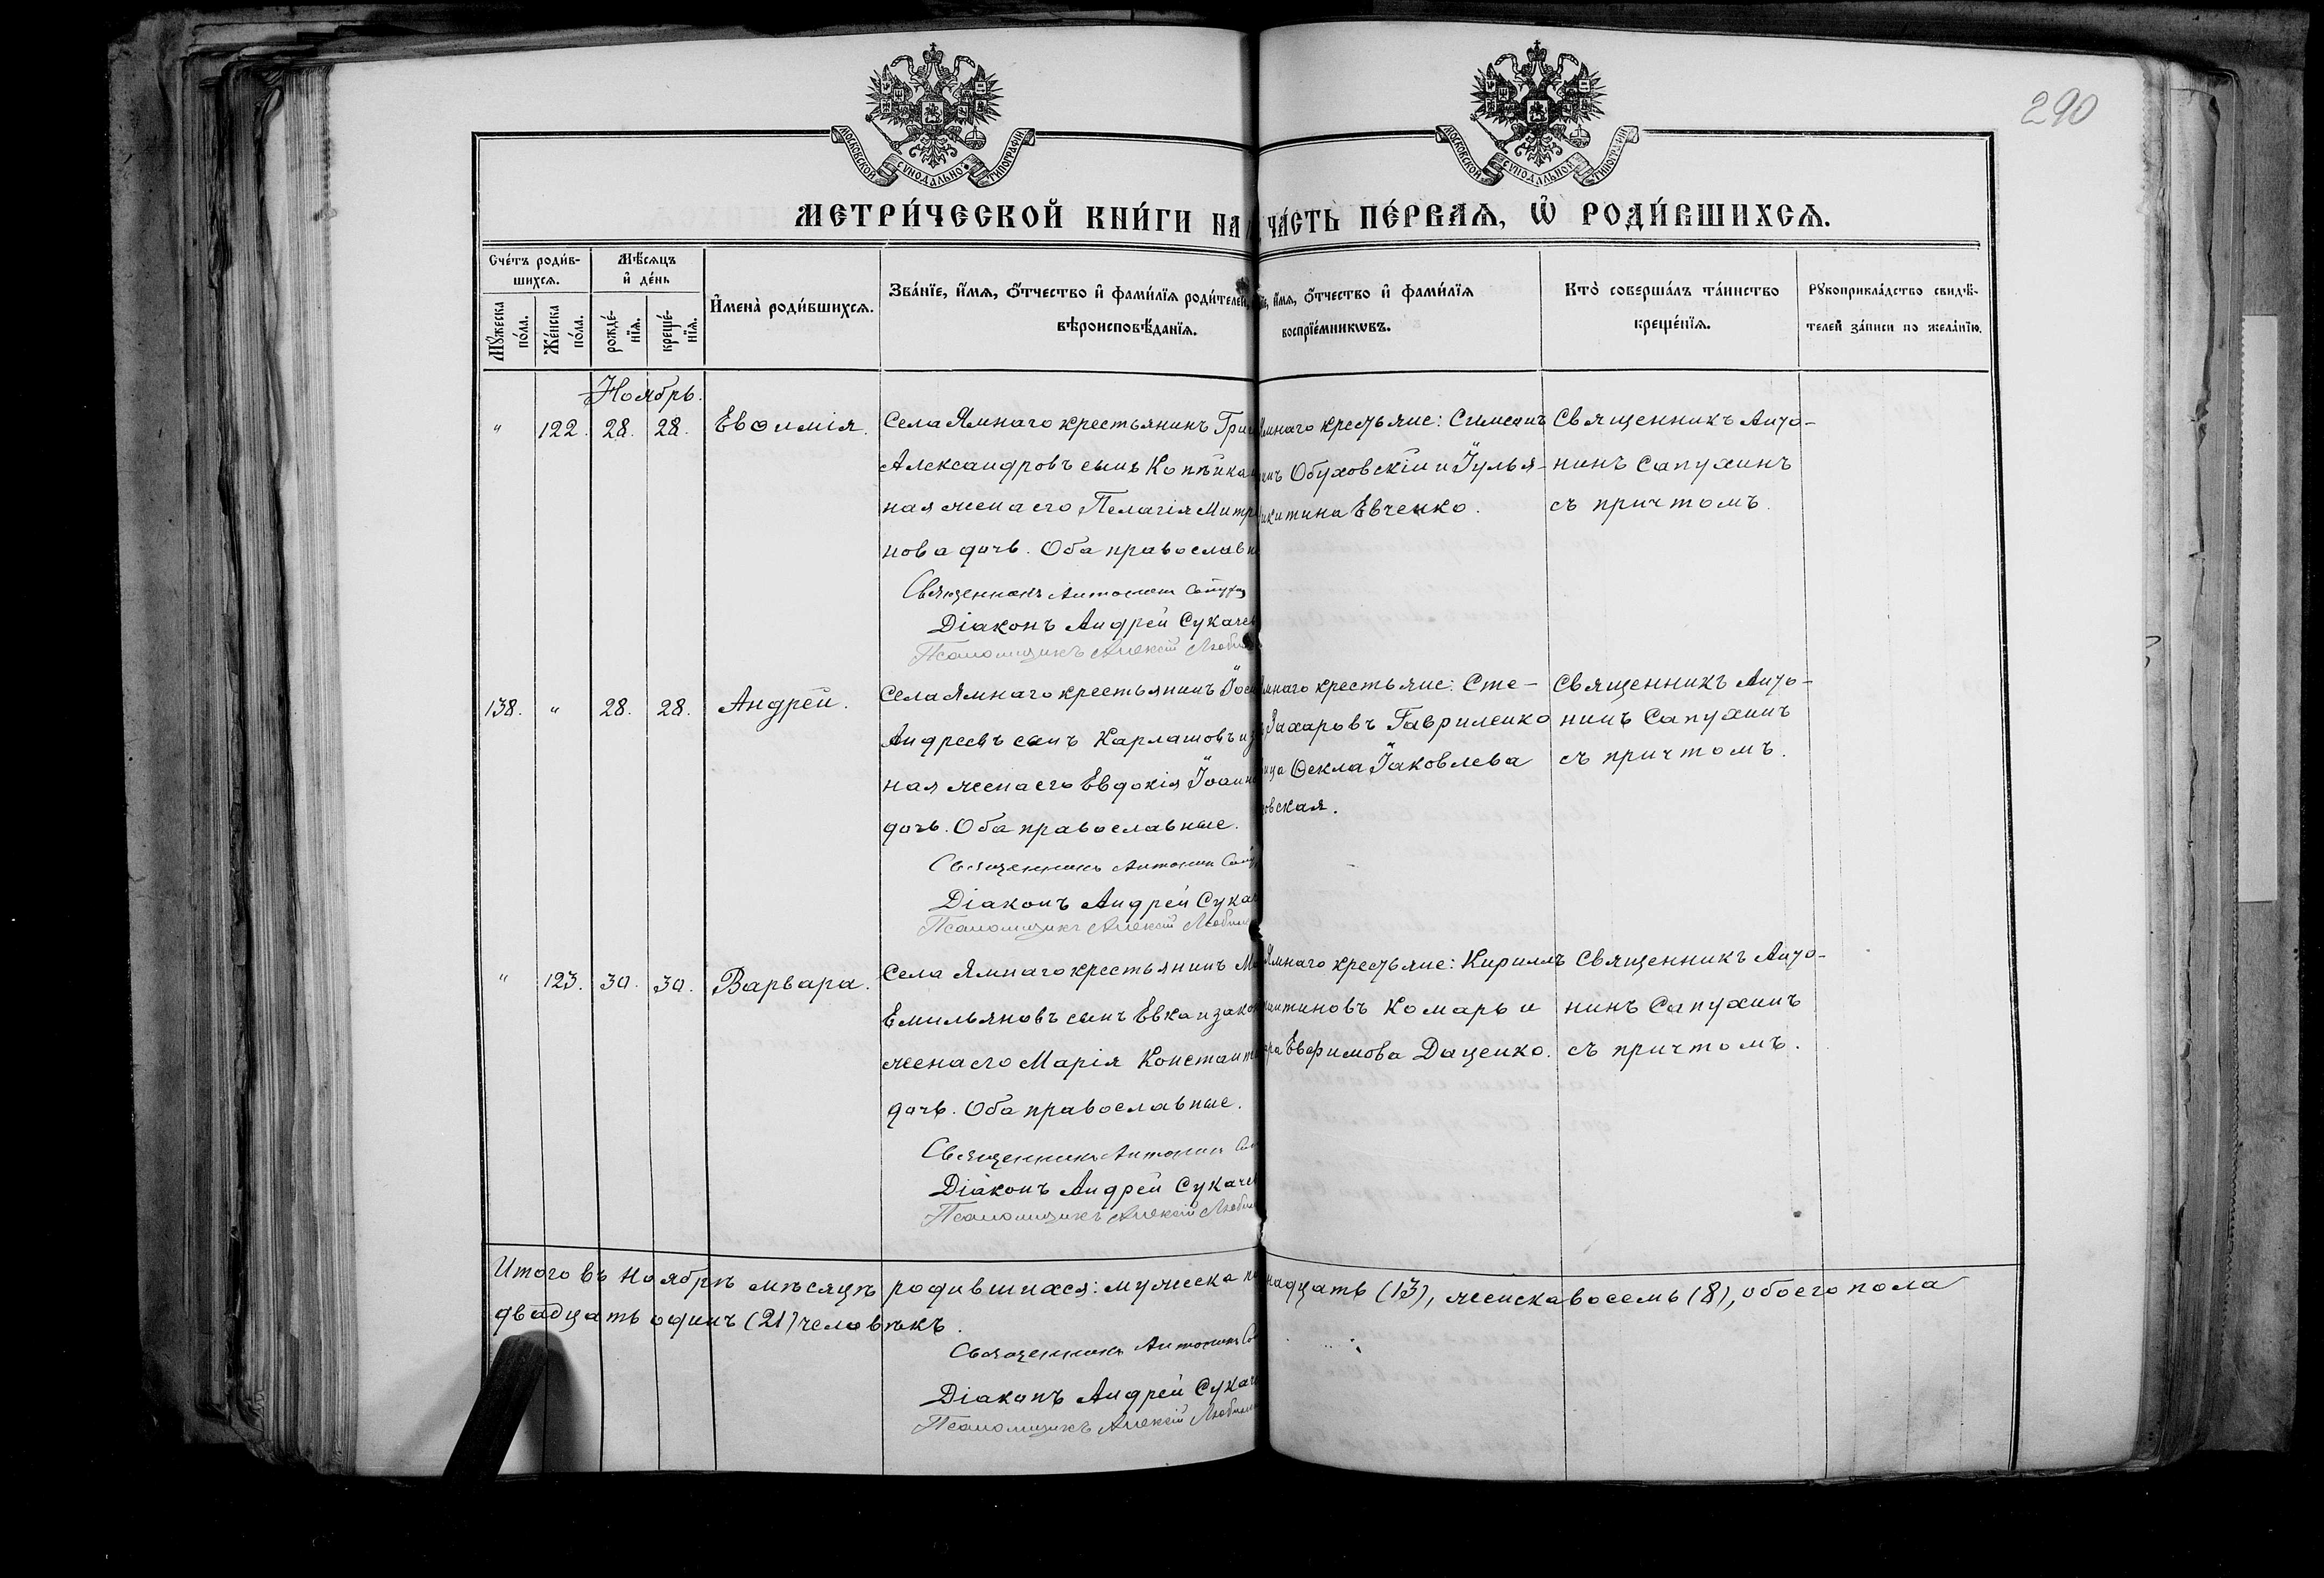 290
МОСКОВСКОЙ СѴНОДАЛЬНОЙ ТИПОГРАФІИ
МОСКОВСКОЙ СѴНОДАЛЬНОЙ ТИПОГРАФІИ
МЕТРИ́ЧЕСКОЙ КНИ́ГИ НА ЧА́СТЬ ПЕ́РВАЯ, Ѡ҆ РОДИ́ВШИХСЯ.
Сче́тъ роди́в-
шихся.
Мꙋ́жеска по́ла.
Же́нска по́ла.
Мѣ́сяцъ
и҆ де́нь
рожде́-
нїя.
креще́-
нїя.
И҆мена̀ роди́вшихся.
Зва́нїе, и҆́мя, ѻ҆́тчество и҆ фами́лїя роди́телей,
вѣроисповѣ́данїя.
и҆́мя, ѻ҆́тчество и҆ фами́лїя
воспрїе́мникѡвъ.
Кто̀ соверша́лъ та́инство
креще́нїя.
Рꙋкоприкла́дство свидѣ́-
телей за́писи по жела́нїю.
Ноябрь.
" 122. 28. 28. Евѳимія.
Села Ямнаго крестьянинъ Гри
Александровъ сынъ Копѣйка
ная жена его Пелагія Митр
нова дочь. Оба православн
Священникъ Антонинъ Сапух
Діаконъ Андрей Сукаче
Псаломщикъ Алексій Люби
мнаго крестьяне: Симеонъ
инъ Обуховскій и Іулья-
икитина Евченко.
Священникъ Анто-
нинъ Сапухинъ
съ причтомъ.
138. " 28. 28. Андрей.
Села Ямнаго крестьянинъ Іоси
Андреевъ сынъ Карлашовъ и з
ная жена его Евдокія Іоанн
дочь. Оба православные.
Священникъ Антонинъ Сапу
Діаконъ Андрей Сукач
Псаломщикъ Алексій Любим
мнаго крестьяне: Сте-
Захаровъ Гавриленко
ица Ѳекла Іаковлева
овская.
Священникъ Анто-
нинъ Сапухинъ
съ причтомъ.
" 123. 30. 30. Варвара.
Села Ямнаго крестьянинъ М
Емильяновъ сынъ Евка и закон
жена его Марія Константи
дочь. Оба православные.
Священникъ Антонинъ Са
Діаконъ Андрей Сукаче
Псаломщикъ Алексій Любим
Ямнаго крестьяне: Кириллъ
антиновъ Комарь и
ара Евфимова Даценко.
Священникъ Анто-
нинъ Сапухинъ
съ причтомъ.
Итого въ Ноябрѣ мѣсяцѣ родившихся: мужеска надцать (13), женска восемь (8), обоего пола
двадцать одинъ (21) человѣкъ.
Священникъ Антонинъ Са
Діаконъ Андрей Сукаче
Псаломщикъ Алексій Любим